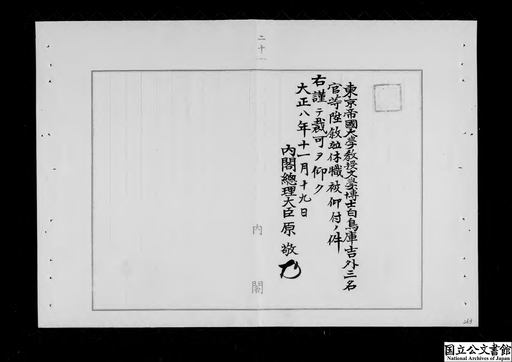 二十一
東京帝國大學教授文學博士白鳥庫吉外三名
官等陞敘並休職被仰付ノ件
右謹テ裁可ヲ仰ク
大正八年十一月十九日
内閣總理大臣 原敬
内閣
国立公文書館
National Archives of Japan